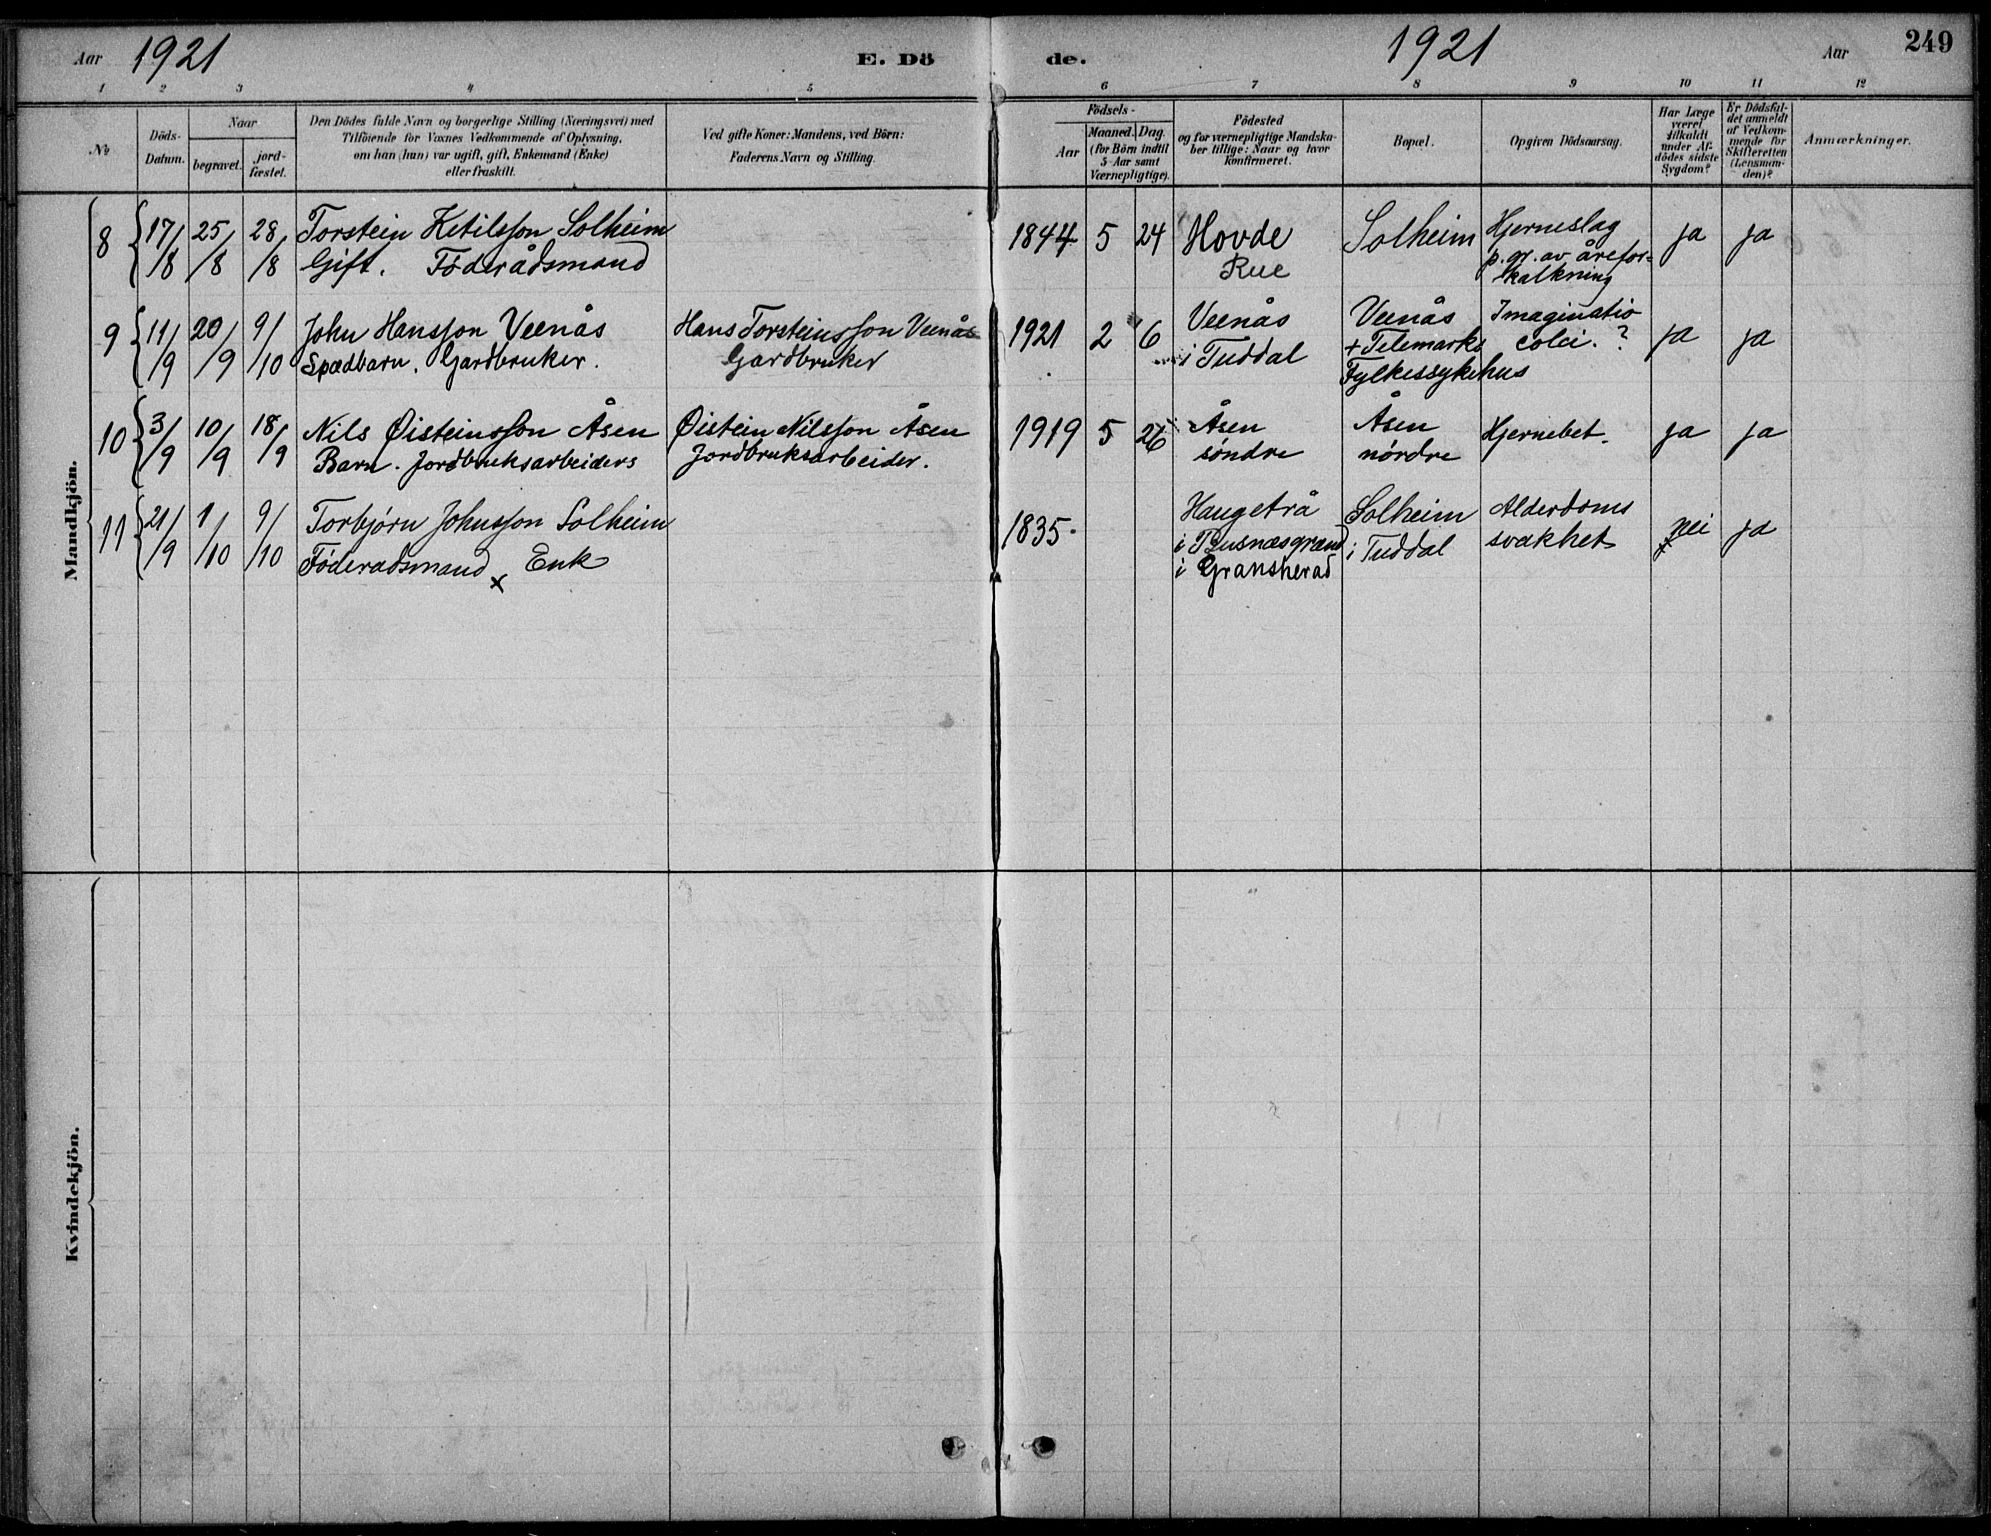 Aar 1921 E. Dö de. 1921 Aar 249
1 2 3 4 5 6 7 8 9 10 11 12
No
Döds-
Datum.
Naar
begravet.
jord-
fæstet.
Den Dödes fulde Navn og borgerlige Stilling (Næringsvei) med
Tilföiende for Voxnes Vedkommende af Oplysning,
om han (hun) var ugift, gift, Enkemand (Enke)
eller fraskilt.
Ved gifte Koner: Mandens, ved Börn:
Faderens Navn og Stilling.
Födsels-
Aar
Maaned. Dag.
(for Börn indtil
5 Aar samt
Værnepligtige).
Födested
og for værnepligtige Mandska-
ber tillige: Naar og hvor
Konfirmeret.
Bopæl.
Opgiven Dödsaarsag.
Har Læge
været
tilkaldt
under Af-
dödes sidste
Sygdom?
Er Dödsfal-
det anmeldt
af Vedkom-
mende for
Skifteretten
(Lensman-
den)?
Anmærkninger.
Mandkjön.
8
17/8
25/8
28/8
Torstein Ketilsson Solheim
Gift. Föderådsmand
1844 5 24
Hovde
Rue
Solheim
Hjerneslag
p. gr. av årefor=
kalkning
ja
ja
9
11/9
20/9
9/10
John Hansson Veenås
Spædbarn. Gardbruker.
Hans Torsteinsson Veenås
Gardbruker
1921 2 6
Veenås
i Tuddal
Veenås
+ Telemarks
Fylkessykehus
Imaginatio
colei. ?
ja
ja
10
3/9
10/9
18/9
Nils Øisteinsson Åsen
Barn. Jordbruksarbeiders
Øistein Nilsson Åsen
Jordbruksarbeider.
1919 5 26
Åsen
søndre
Åsen
nørdre
Hjernebet.
ja
ja
11
21/9
1/10
9/10
Torbjørn Johnsson Solheim
Föderadsmand x Enk
1835.
Haugetrå
i Busnesgrend
i Gransherad
Solheim
i Tuddal
Alderdoms
svakhet
nei
ja
Kvindekjön.